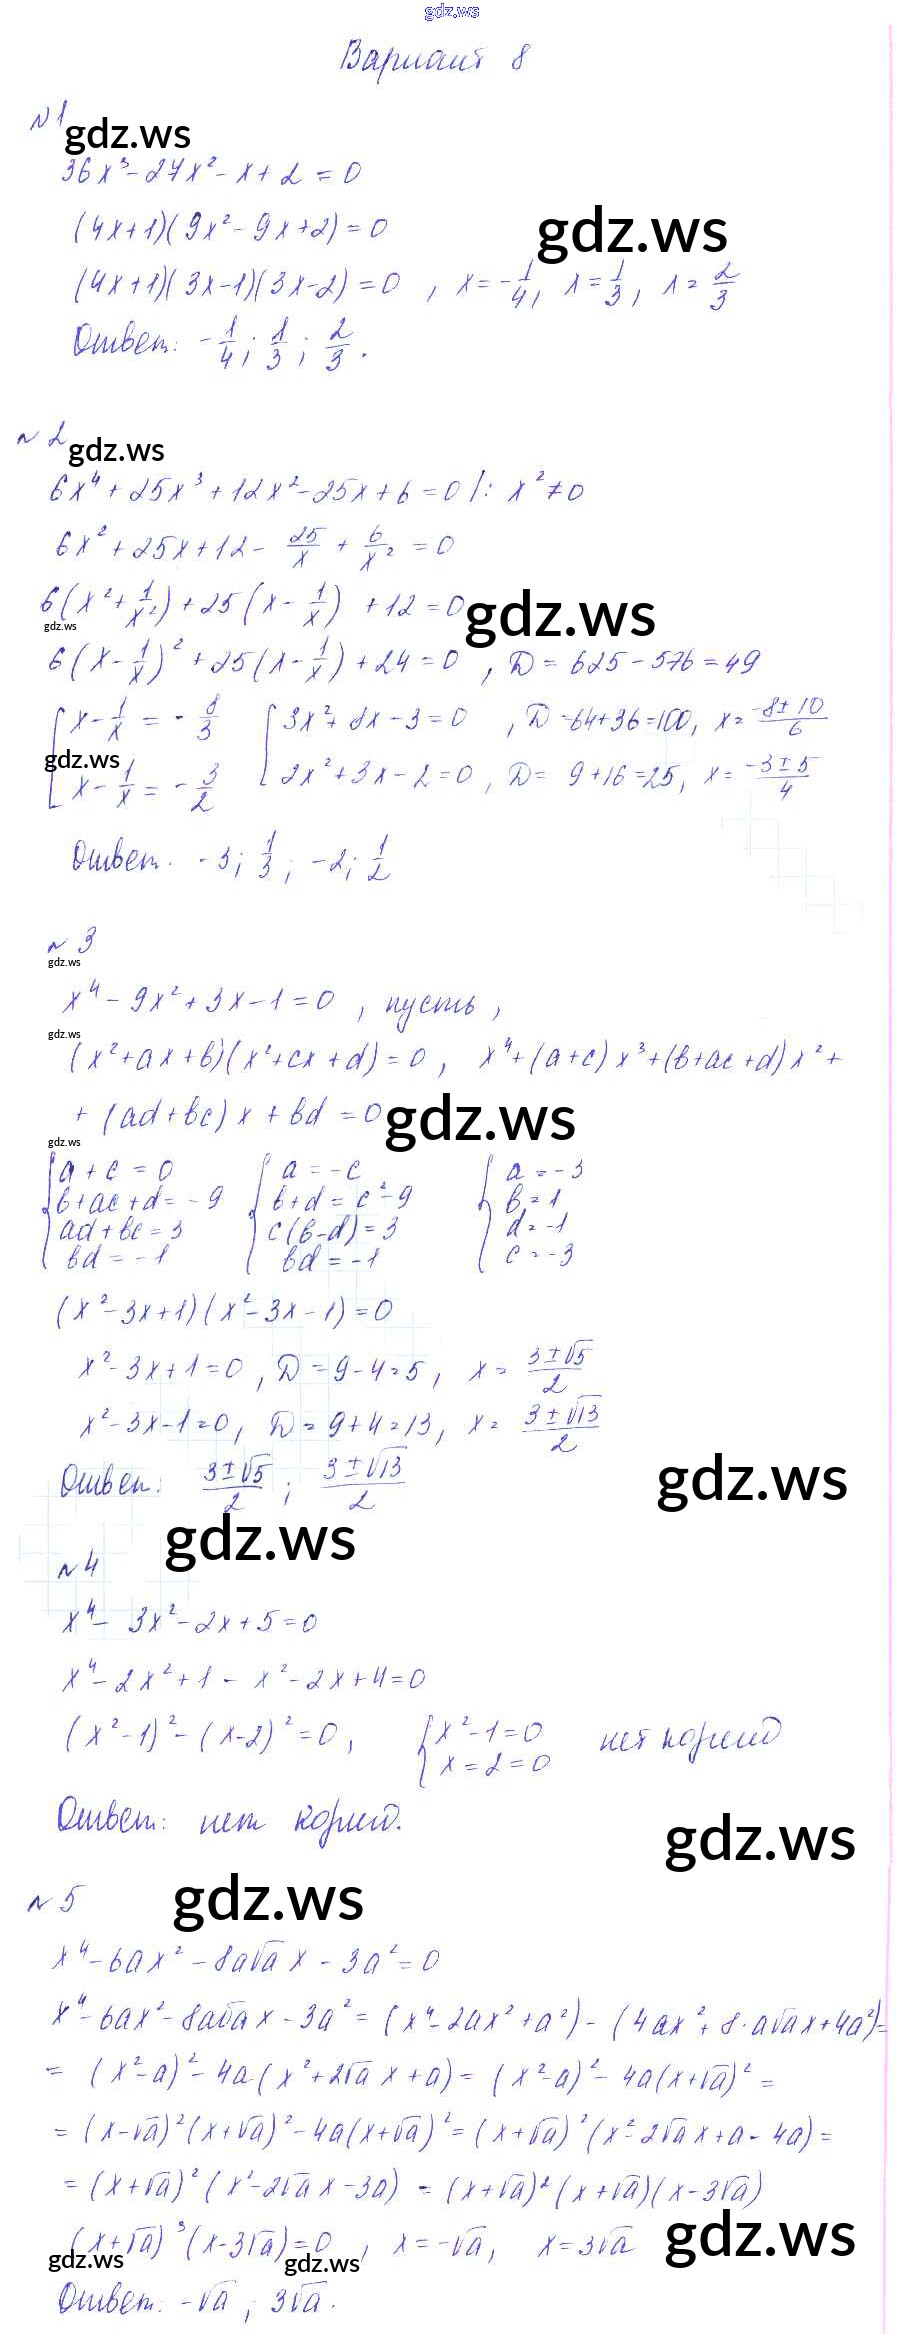 gdz.ws
Вариант 8
№1
gdz.ws
36x³-27x²-x+2=0
(4x+1)(9x²-9x+2)=0
gdz.ws
(4x+1)(3x-1)(3x-2)=0, x=-1/4, x=1/3, x=2/3
Ответ: -1/4; 1/3; 2/3.
№2
gdz.ws
6x⁴+25x³+12x²-25x+6=0 |: x²≠0
6x²+25x+12-25/x+6/x²=0
6(x²+1/x²)+25(x-1/x)+12=0
gdz.ws
gdz.ws
6(x-1/x)²+25(x-1/x)+24=0, D=625-576=49
[x-1/x=-8/3 [3x²+8x-3=0, D=64+36=100, x=(-8±10)/6
gdz.ws
[x-1/x=-3/2 [2x²+3x-2=0, D=9+16=25, x=(-3±5)/4
Ответ. -3; 1/3; -2; 1/2
№3
gdz.ws
x⁴-9x²+3x-1=0, пусть,
gdz.ws
(x²+ax+b)(x²+cx+d)=0, x⁴+(a+c)x³+(b+ac+d)x²+
+(ad+bc)x+bd=0
gdz.ws
gdz.ws
{a+c=0 {a=-c {a=-3
b+ac+d=-9 b+d=c²-9 b=1
ad+bc=3 c(b-d)=3 d=-1
bd=-1 bd=-1 c=-3
(x²-3x+1)(x²-3x-1)=0
x²-3x+1=0, D=9-4=5, x=(3±√5)/2
x²-3x-1=0, D=9+4=13, x=(3±√13)/2
Ответ: (3±√5)/2; (3±√13)/2
gdz.ws
gdz.ws
№4
x⁴-3x²-2x+5=0
x⁴-2x²+1-x²-2x+4=0
(x²-1)²-(x-2)²=0, {x²-1=0 нет корней
x=2=0
Ответ: нет корней.
gdz.ws
№5
gdz.ws
x⁴-6ax²-8a√a x-3a²=0
x⁴-6ax²-8a√a x-3a²=(x⁴-2ax²+a²)-(4ax²+8·a√a x+4a²)=
=(x²-a)²-4a(x²+2√a x+a)=(x²-a)²-4a(x+√a)²=
=(x-√a)²(x+√a)²-4a(x+√a)²=(x+√a)²(x²-2√a x+a-4a)=
=(x+√a)²(x²-2√a x-3a)=(x+√a)²(x+√a)(x-3√a)
(x+√a)³(x-3√a)=0, x=-√a, x=3√a
gdz.ws
gdz.ws
gdz.ws
Ответ: -√a; 3√a.